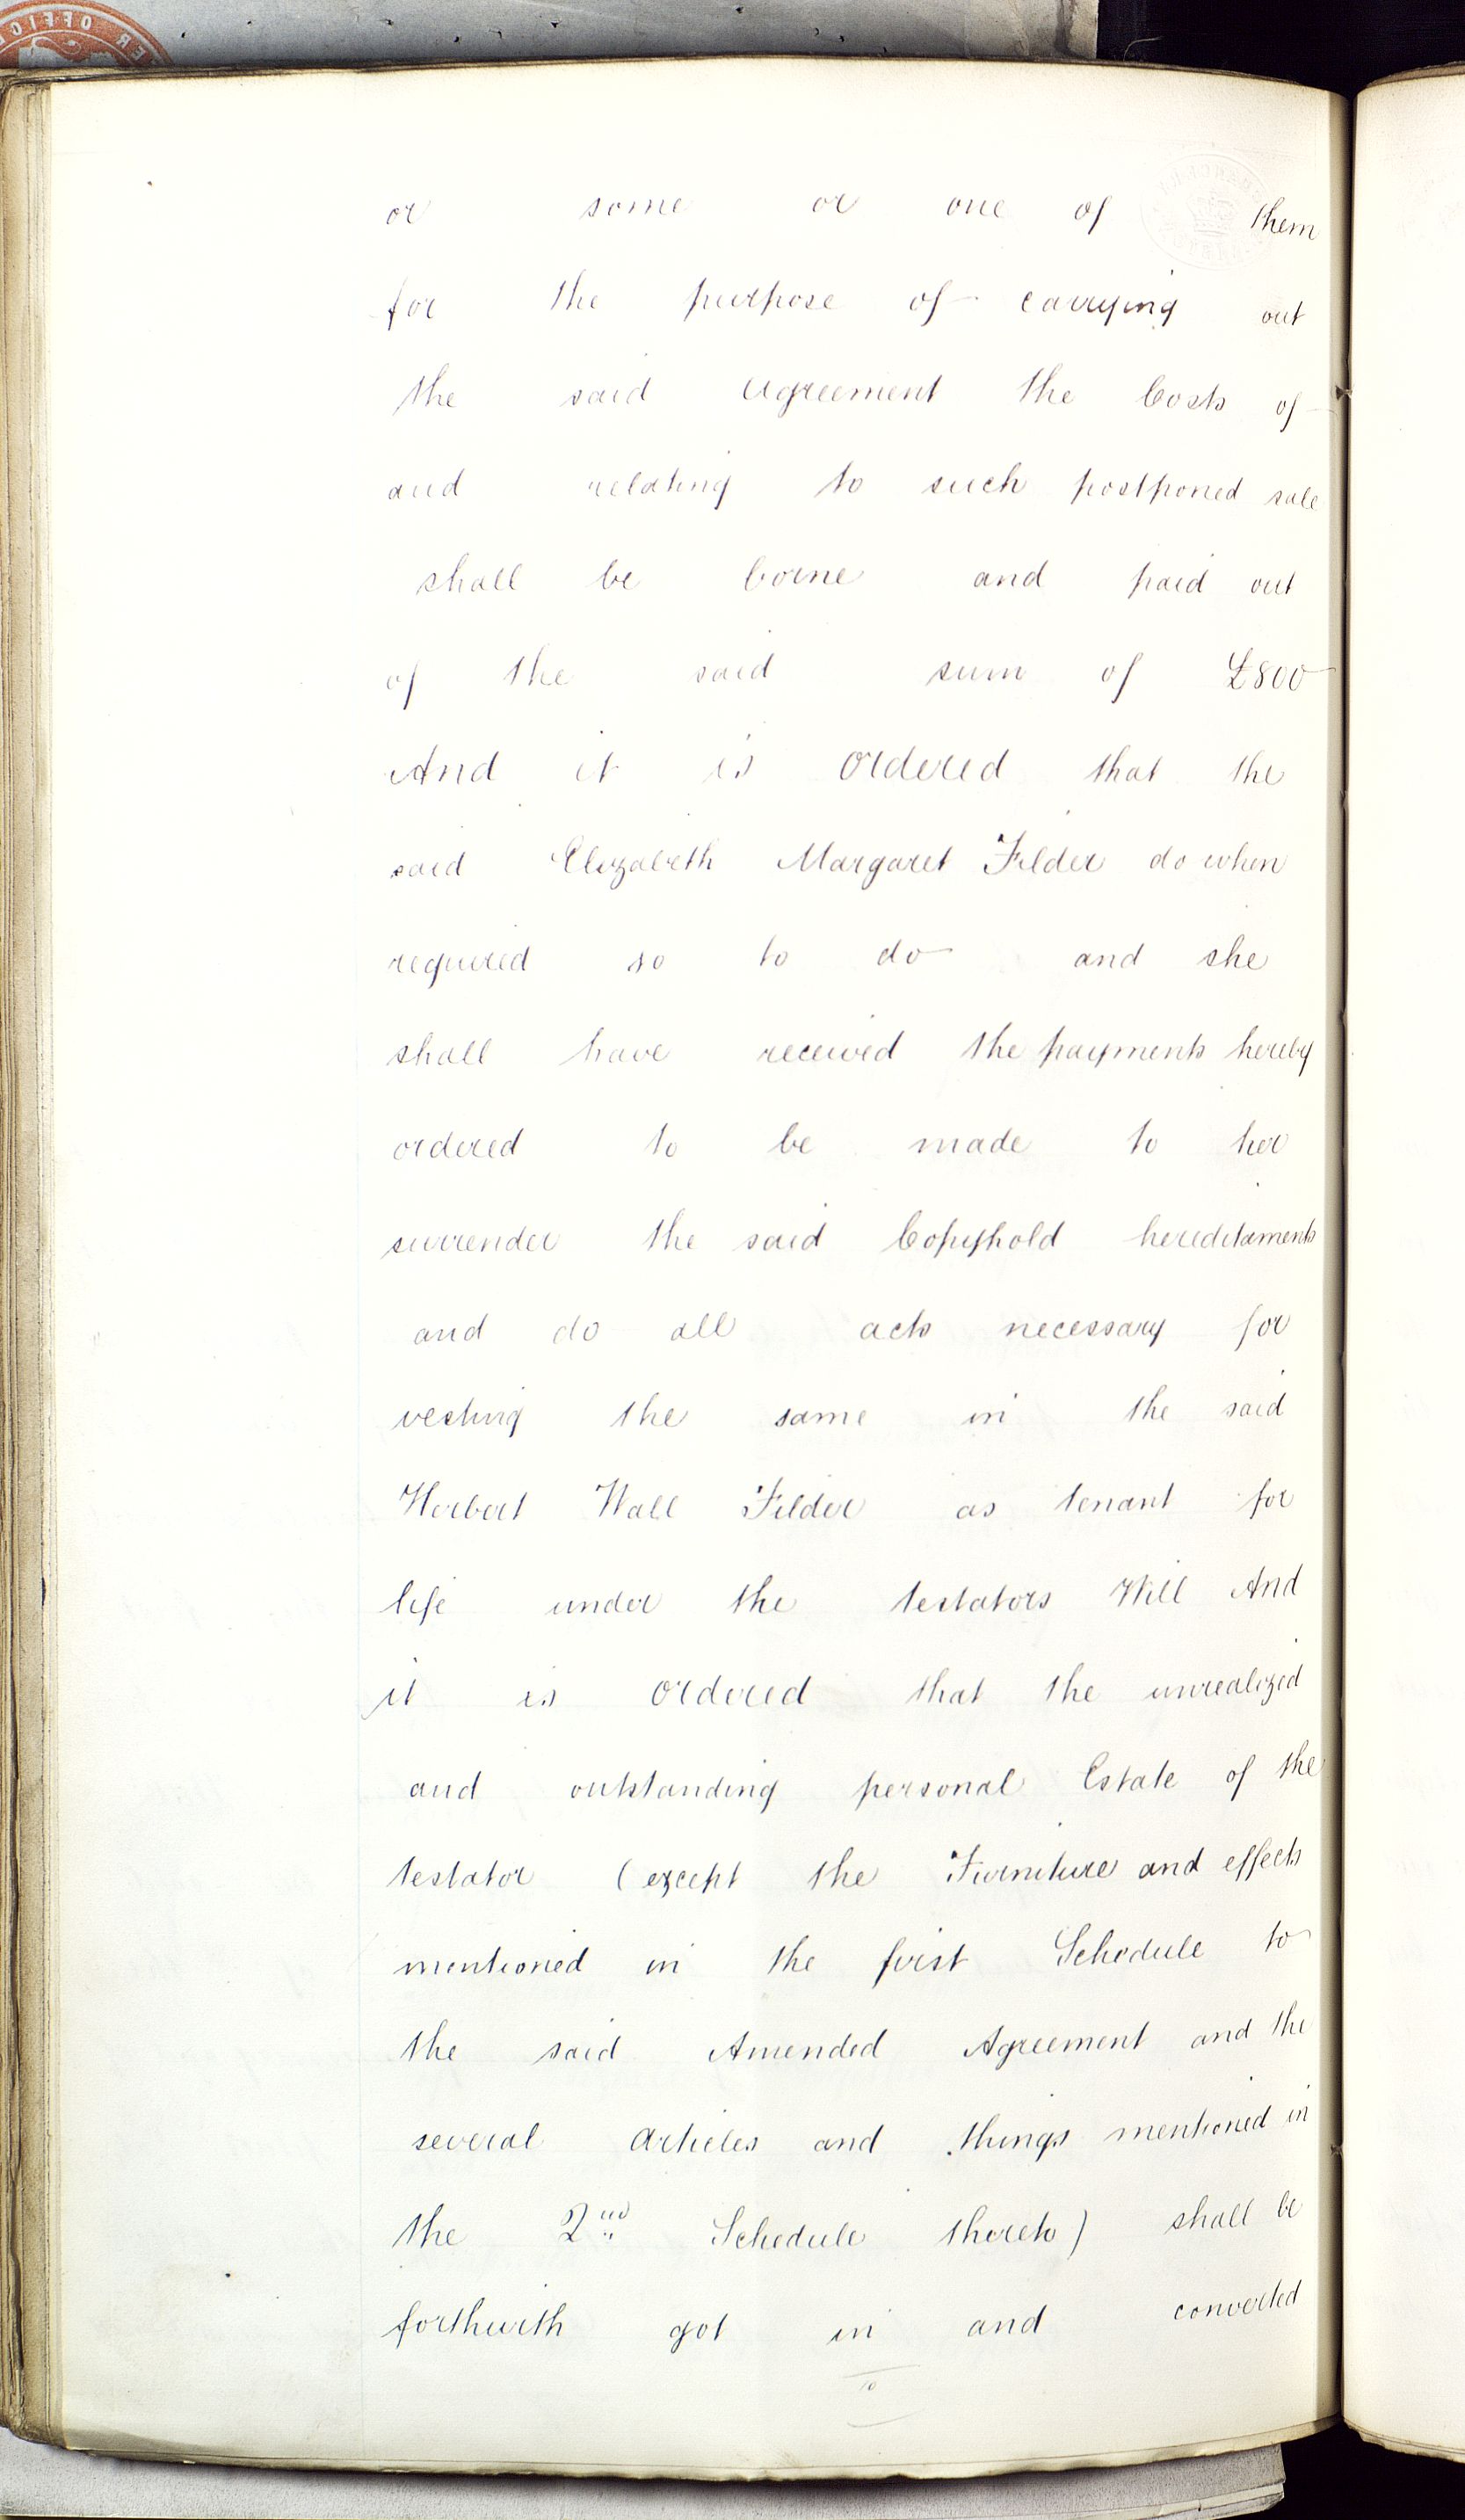 or some or one of them
for the purpose of carrying out
the said agreement the Costs of
and relating to such postponed sale
shall be borne and paid out
of the said sum of £800
And it is ordered that the
said Elizabeth Margaret Filder do when
required so to do and she
shall have received the payments hereby
ordered to be made to her
surrender the said Copyhold hereditaments
and do all acts necessary for
vesting the same in the said
Herbert Wall Filder as tenant for
life under the testators Will And
it is ordered that the unrealized
and outstanding personal Estate of the
testator (except the Furniture and effects
mentioned in the first Schedule to
the said Amended Agreement and the
several articles and things mentioned in
the 2nd Schedule thereto) shall be
forthwith got in and converted
10